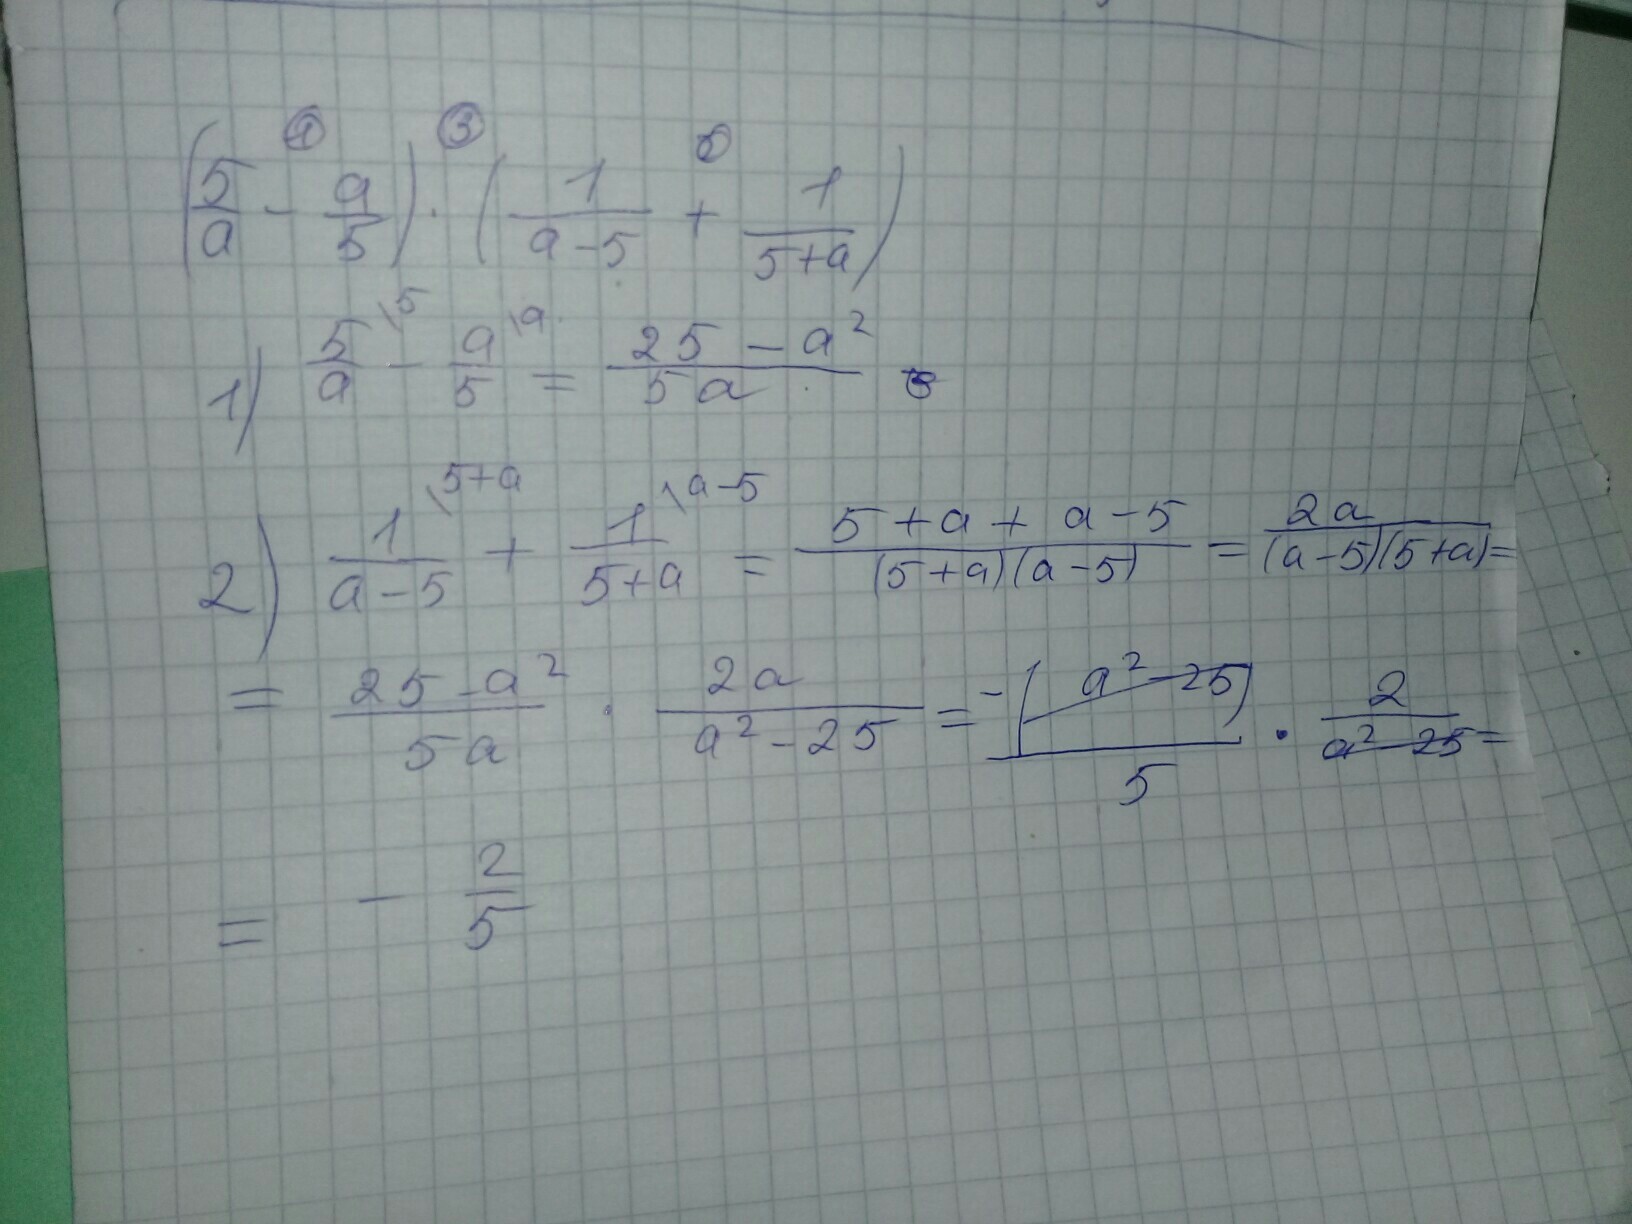 ① ③ ②
(5/a - a/5) · (1/(a-5) + 1/(5+a))
1) 5/a \5 - a/5 \a = (25 - a²)/(5a)
2) 1/(a-5) \5+a + 1/(5+a) \a-5 = (5+a+a-5)/((5+a)(a-5)) = 2a/((a-5)(5+a)) =
= (25-a²)/(5a) · 2a/(a²-25) = -(a²-25)/5 · 2/(a²-25) =
= - 2/5